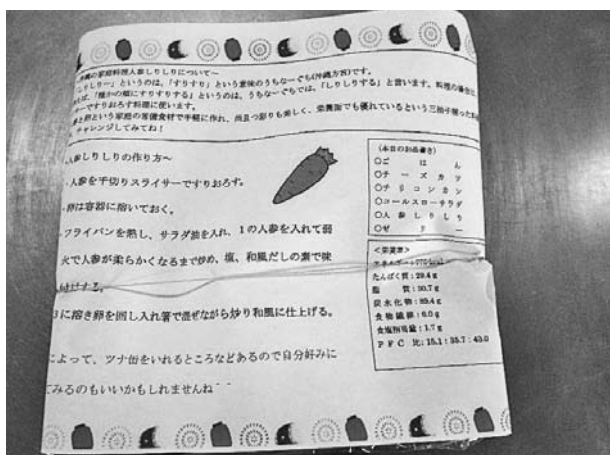 沖縄の家庭料理人参しりしりについて～
「しりしりー」というのは、「すりすり」という意味のうちなーぐち(沖縄方言)です。
「誰かの頬にすりすりする」というのは、うちなーぐちでは、「しりしりする」と言います。料理の場合は
サーですりおろす料理に使います。
と卵という家庭の常備食材で手軽に作れ、尚且つ彩りも楽しく、栄養面でも優れているという三拍子揃ったお
チャレンジしてみてね！
人参しりしりの作り方～
・人参を千切りスライサーですりおろす。
・卵は容器に溶いておく。
フライパンを熱し、サラダ油を入れ、１の人参を入れて弱
火で人参が柔らかくなるまで炒め、塩、和風だしの素で味
付けする。
３に溶き卵を回し入れ箸で混ぜながら炒り和風に仕上げる。
によって、ツナ缶をいれるところなどあるので自分好みに
てみるのもいいかもしれませんね
(本日のお品書き)
○ごはん
○チーズカツ
○チリコンカン
○コールスローサラダ
○人参しりしり
○ゼリー
<栄養素>
たんぱく質：29.4ｇ
脂質：30.7ｇ
炭水化物：89.4ｇ
食物繊維：6.0ｇ
食塩相当量：1.7ｇ
ＰＦＣ比：15.1：35.7：43.0